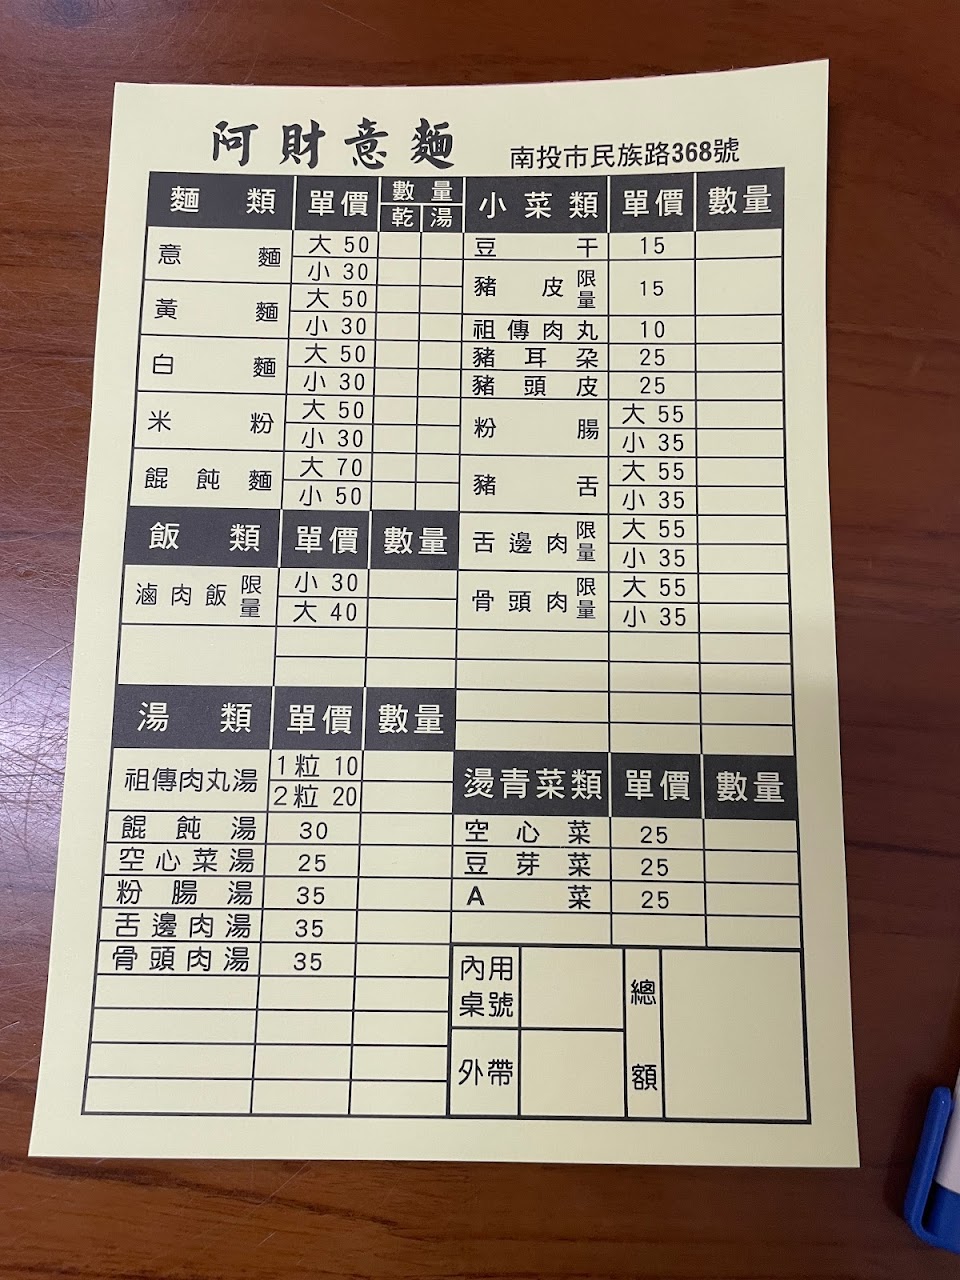 阿財意麵 南投市民族路368號
麵類 單價 數量 乾 湯
意麵 大 50
小 30
黃麵 大 50
小 30
白麵 大 50
小 30
米粉 大 50
小 30
餛飩麵 大 70
小 50
飯類 單價 數量
滷肉飯 限量 小 30
大 40
湯類 單價 數量
祖傳肉丸湯 1粒 10
2粒 20
餛飩湯 30
空心菜湯 25
粉腸湯 35
舌邊肉湯 35
骨頭肉湯 35
小菜類 單價 數量
豆干 15
豬皮 限量 15
祖傳肉丸 10
豬耳朶 25
豬頭皮 25
粉腸 大 55
小 35
豬舌 大 55
小 35
舌邊肉 限量 大 55
小 35
骨頭肉 限量 大 55
小 35
燙青菜類 單價 數量
空心菜 25
豆芽菜 25
A菜 25
內用桌號
外帶
總額